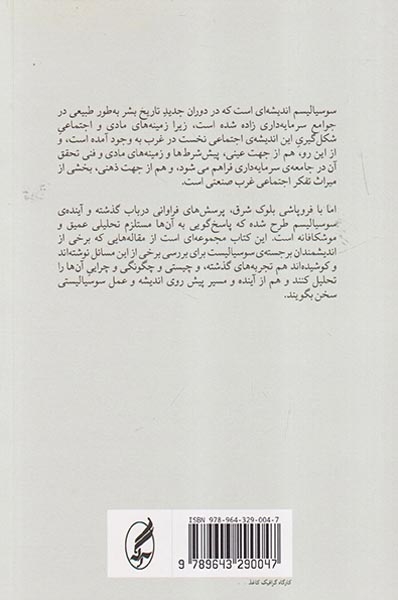 سوسیالیسم اندیشه‌ای است که در دوران جدیدِ تاریخ بشر به‌طور طبیعی در
جوامع سرمایه‌داری زاده شده است، زیرا زمینه‌های مادی و اجتماعیِ
شکل‌گیریِ این اندیشه‌ی اجتماعی نخست در غرب به وجود آمده است، و
از این رو، هم از جهت عینی، پیش‌شرط‌ها و زمینه‌های مادی و فنی تحقق
آن در جامعه‌ی سرمایه‌داری فراهم می شود، و هم از جهت ذهنی، بخشی از
میراث تفکر اجتماعی غرب صنعتی است.
اما با فروپاشی بلوک شرق، پرسش‌های فراوانی درباب گذشته و آینده‌ی
سوسیالیسم طرح شده که پاسخ‌گویی به آن‌ها مستلزم تحلیلی عمیق و
موشکافانه است. این کتاب مجموعه‌ای است از مقاله‌هایی که برخی از
اندیشمندان برجسته‌ی سوسیالیست برای بررسی برخی از این مسائل نوشته‌اند
و کوشیده‌اند هم تجربه‌های گذشته، و چیستی و چگونگی و چراییِ آن‌ها را
تحلیل کنند و هم از آینده و مسیر پیش روی اندیشه و عمل سوسیالیستی
سخن بگویند.
ISBN 978-964-329-004-7
9 789643 290047
آگه
کارگاه گرافیک کاغذ...